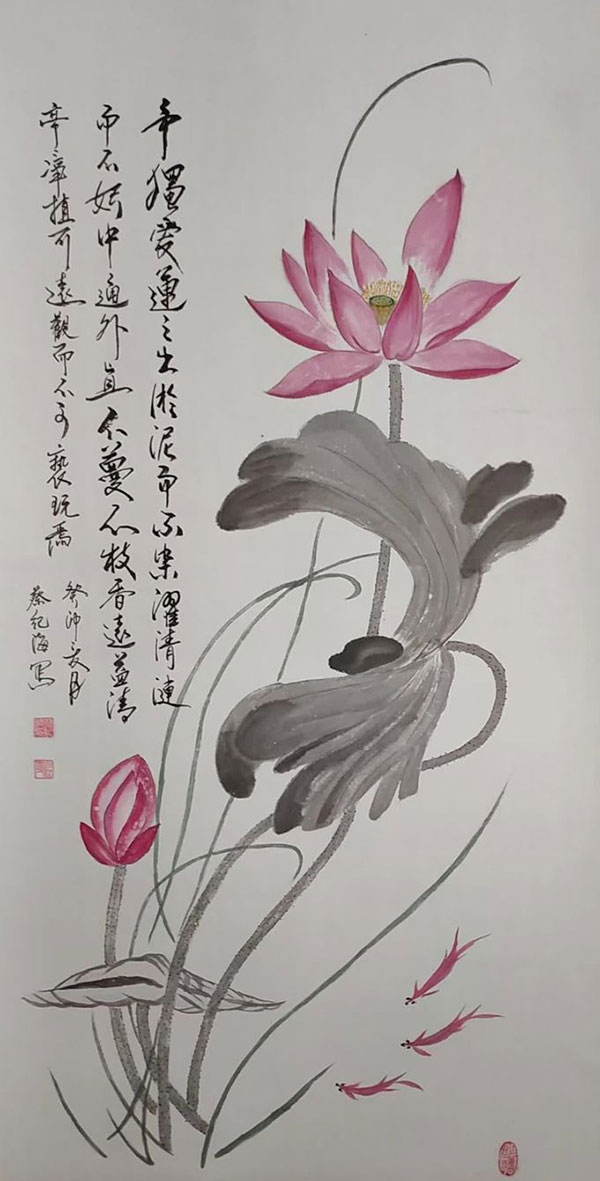 予獨愛蓮之出淤泥而不染濯清漣
而不妖中通外直不蔓不枝香遠益清
亭〻淨植可遠觀而不可褻玩焉
癸卯夏月
蔡紀海寫